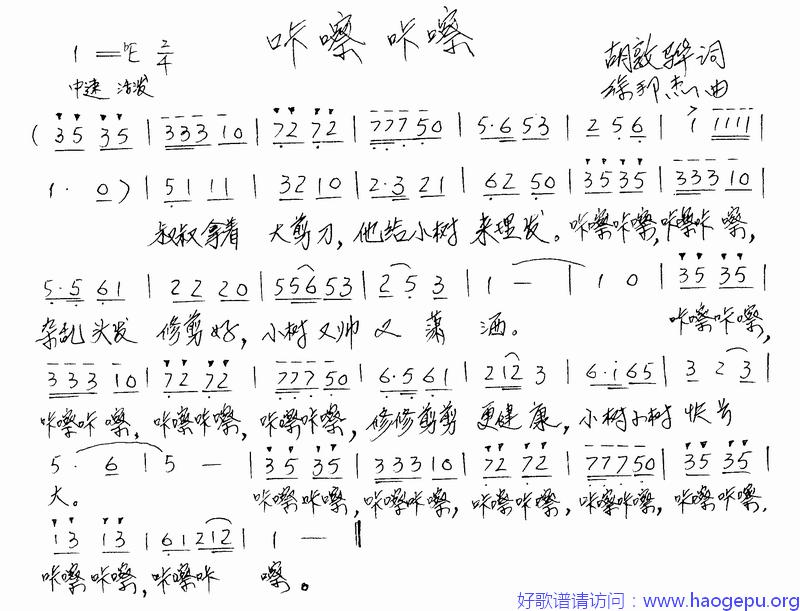 咔嚓咔嚓
1=ᵇE 2/4
中速 活泼
胡敦骅词
徐邦杰曲
( 35 35 | 333 10 | 72 72 | 777 50 | 5·6 53 | 2 5 6 | i 1111 |
1· 0 ) | 51 11 | 32 10 | 2·3 21 | 62 50 | 35 35 | 333 10 |
叔叔拿着 大剪刀，他给小树 来理发。咔嚓咔嚓，咔嚓咔 嚓，
5·5 61 | 22 20 | 556 53 | 2 5 3 | 1 － | 1 0 | 35 35 |
杂乱头发 修剪好，小树又帅 又 潇 洒。 咔嚓咔嚓，
333 10 | 72 72 | 777 50 | 6·5 61 | 212 3 | 6·i 65 | 3 2 3 |
咔嚓咔 嚓，咔嚓咔嚓，咔嚓咔嚓，修修剪剪 更健 康，小树小树 快长
5· 6 | 5 － | 35 35 | 333 10 | 72 72 | 777 50 | 35 35 |
大。 咔嚓咔嚓，咔嚓咔嚓，咔嚓咔嚓，咔嚓咔嚓，咔嚓咔嚓，
13 13 | 61 212 | 1 － |
咔嚓咔嚓，咔嚓咔 嚓。
好歌谱请访问：www.haogepu.org